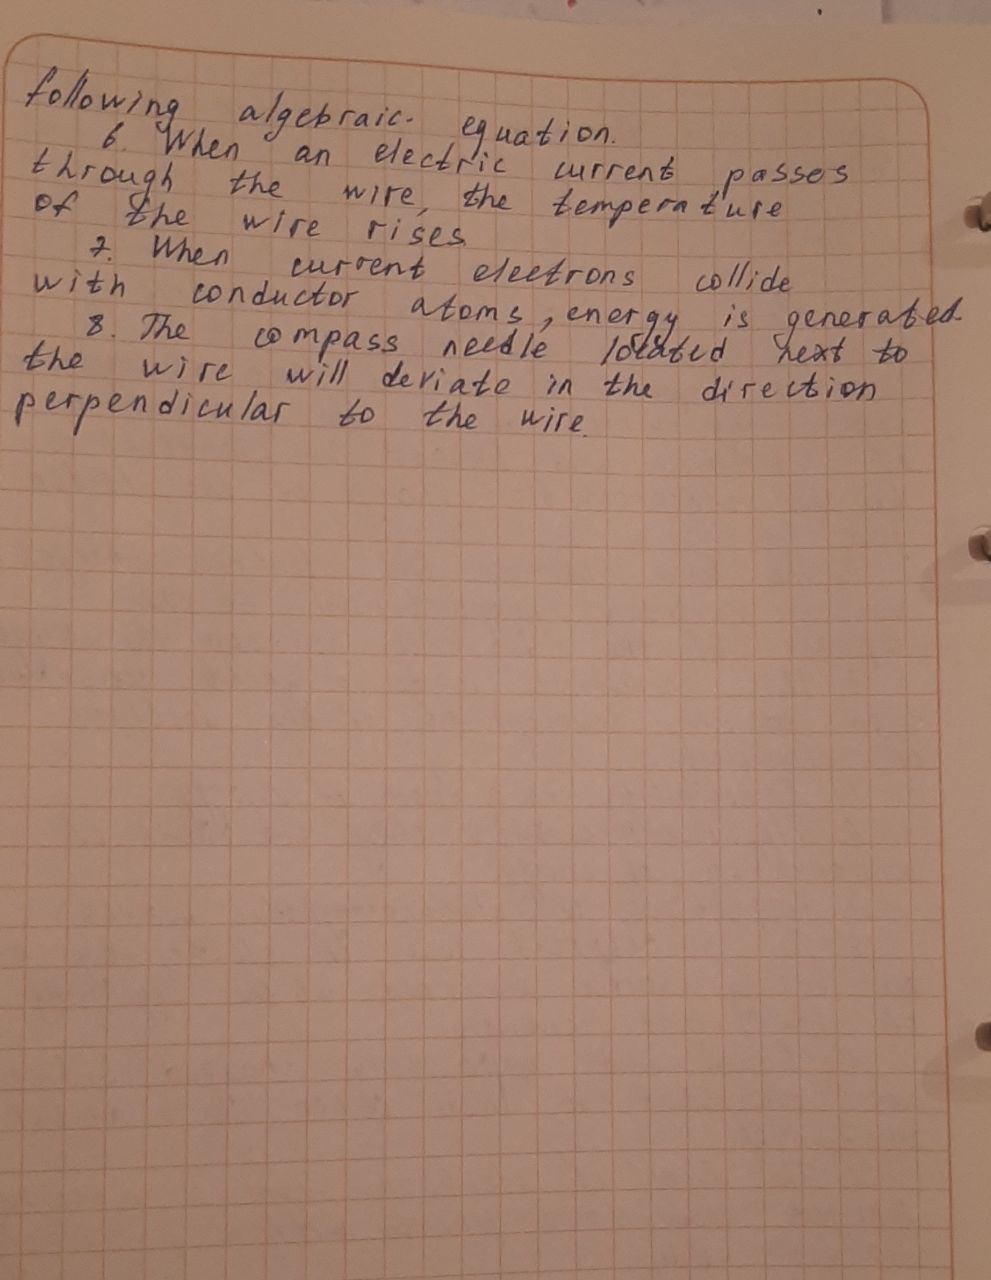 following algebraic. equation.
6. When an electric current passes
through the wire, the temperature
of the wire rises
7. When current electrons collide
with conductor atoms, energy is generated.
8. The compass needle located next to
the wire will deviate in the direction
perpendicular to the wire.